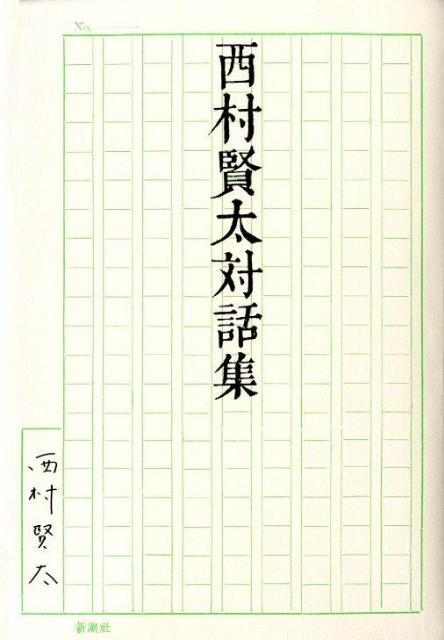 No.
西村賢太対話集
西村賢太
新潮社